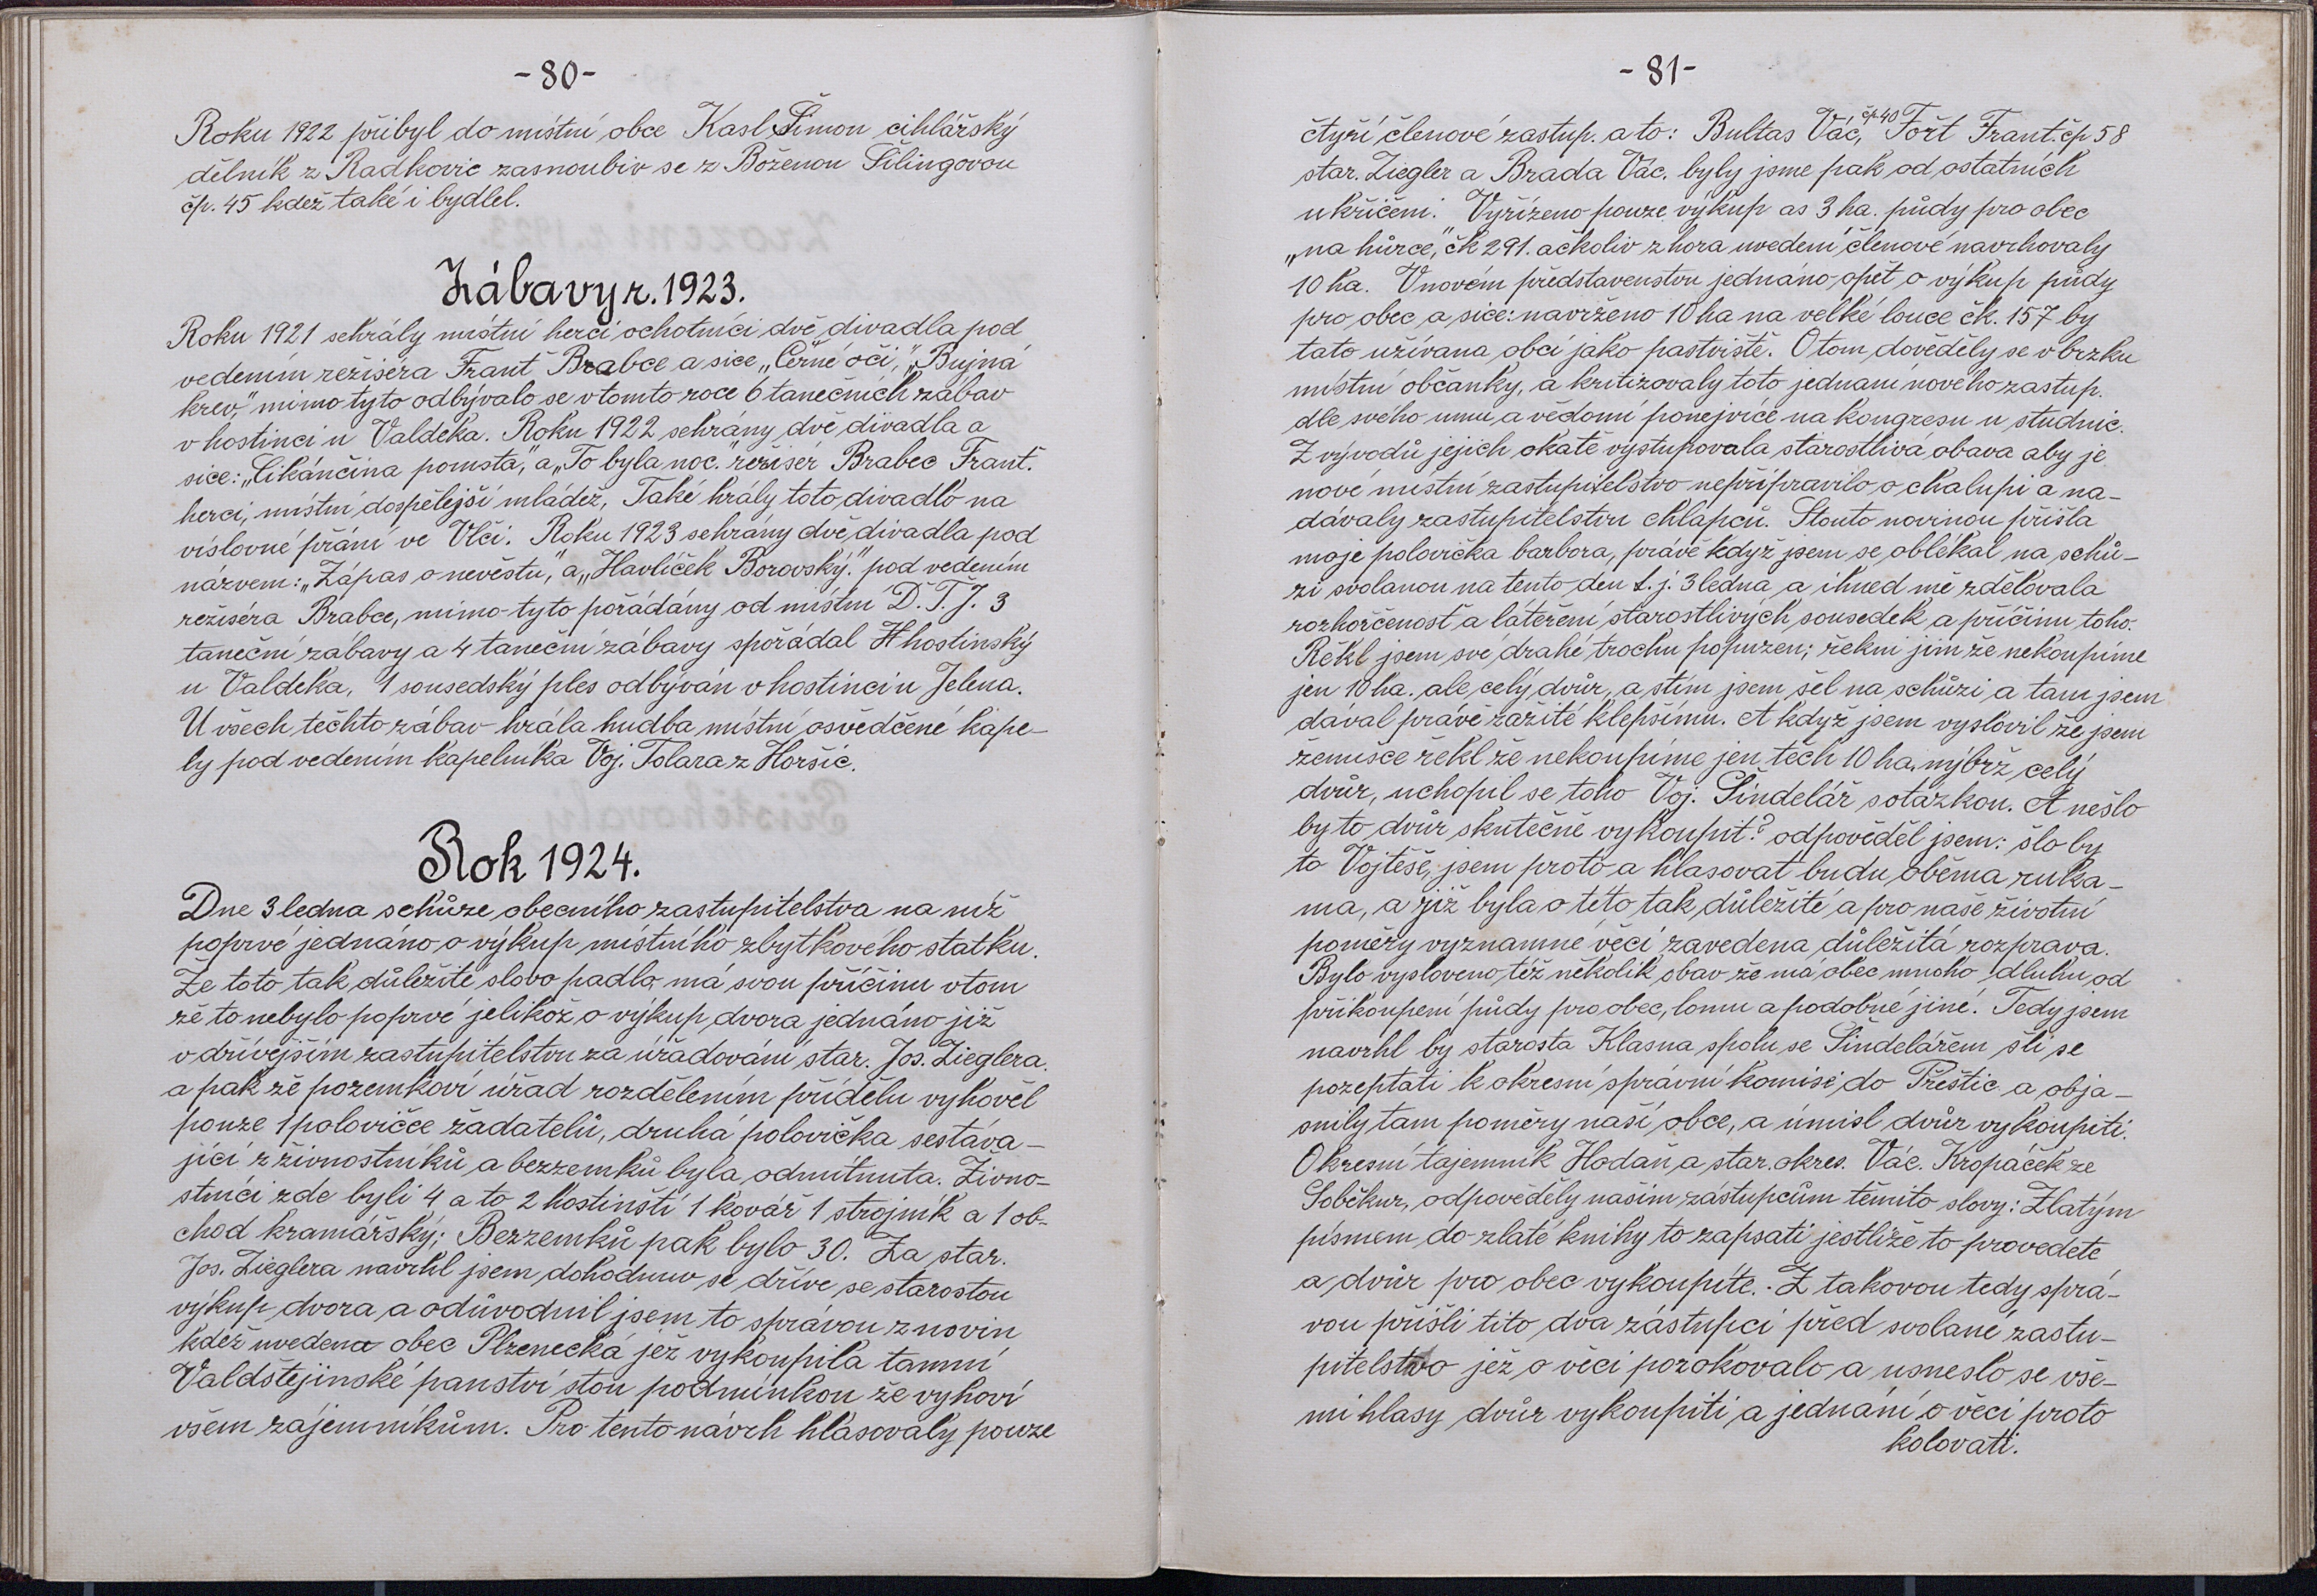 -80-
Roku 1922 přibyl do místní obce Kasl Šimon cihlářský
dělník z Radkovic zasnoubiv se z Boženou Šilingovou
čp. 45 kdež také i bydlel.
Zábavy r. 1923.
Roku 1921 sehrály místní herci ochotníci dvě divadla pod
vedením režiséra Frant Brabce a sice „Černé oči,” „Bujná
krev,” mimo tyto odbývalo se v tomto roce 6 tanečních zábav
v hostinci u Valdeka. Roku 1922 sehrány dvě divadla a
sice: „Cikánčina pomsta,” a „To byla noc.” režisér Brabec Frant.
herci, místní dospělejší mládež, Také hrály toto divadlo na
víslovné přání ve Vlči. Roku 1923 sehrány dvě divadla pod
názvem: „Zápas o nevěstu,” a „Havlíček Borovský.” pod vedením
režiséra Brabce, mimo tyto pořádány od místní D. T. J. 3
taneční zábavy a 4 taneční zábavy spořádal H hostinský
u Valdeka, 1 sousedský ples odbýván v hostinci u Jelena.
U všech těchto zábav hrála hudba místní osvědčené kape-
ly pod vedením kapelníka Voj. Tolara z Horšic.
Rok 1924.
Dne 3 ledna schůze obecního zastupitelstva na níž
poprvé jednáno o výkup místního zbytkového statku.
Že toto tak důležité slovo padlo má svou příčinu v tom
že to nebylo poprvé jelikož o výkup dvora jednáno již
v dřívějším zastupitelstvu za úřadování star. Jos. Zieglera.
a pak že pozemkoví úřad rozdělením přídělu vyhověl
pouze 1 polovičce žadatelů, druhá polovička sestáva-
jící z živnostníků a bezzemků byla odmítnuta. Živno-
stníci zde byli 4 a to 2 hostinští 1 kovář 1 strojník a 1 ob-
chod kramářský; Bezzemků pak bylo 30. Za star.
Jos. Zieglera navrhl jsem dohodnuv se dříve se starostou
výkup dvora a odůvodnil jsem to správou z novin
kdež uvedena obec Plzenecká jež vykoupila tamní
Valdštejinské panství stou podmínkou že vyhoví
všem zájemníkům. Pro tento návrh hlasovaly pouze
-81-
čtyří členové zastup. a to: Bultas Vác, čp 40 Fořt Frant. čp 58
star. Ziegler a Brada Vác. byly jsme pak od ostatních
ukřičeni. Vyřízeno pouze výkup as 3 ha. půdy pro obec
„na hůrce,” čk 291. ačkoliv z hora uvedení členové navrhovaly
10 ha. V novém představenstvu jednáno opět o výkup půdy
pro obec a sice: navrženo 10 ha na velké louce čk. 157 by
tato užívana obcí jako pastviště. O tom dověděly se v brzku
místní občanky, a kritizovaly toto jednaní nového zastup.
dle svého umu a vědomí ponejvíce na kongresu u studnic.
Z vývodů jejich okatě vystupovala starostlivá obava aby je
nové místní zastupitelstvo nepřipravilo o chalupi a na-
dávaly zastupitelstvu chlapců. Stouto novinou přišla
moje polovička barbora, právě když jsem se oblékal na schů-
zi svolanou na tento den t. j. 3 ledna a ihned mě zdělovala
rozhořčenost a láteření starostlivých sousedek a příčinu toho.
Řekl jsem své drahé trochu popuzen; řekni jim že nekoupíme
jen 10 ha. ale celý dvůr, a stím jsem šel na schůzi a tam jsem
dával právě zažité klepšímu. A když jsem vyslovil že jsem
žemišce řekl že nekoupíme jen těch 10 ha. nýbrž celý
dvůr, uchopil se toho Voj. Šindelář s otázkou. A nešlo
by to dvůr skutečně vykoupit? odpověděl jsem: šlo by
to Vojtěše, jsem proto a hlasovat budu oběma ruka-
ma, a již byla o této tak důležité a pro naše životní
poměry vyznamné věci zavedena důležitá rozprava.
Bylo vysloveno též několik obav že má obec mnoho dluhu od
přikoupení půdy pro obec, lomu a podobné jiné. Tedy jsem
navrhl by starosta Klasna spolu se Šindelářem šli se
pozeptati k okresní správní komisi do Přeštic a obja-
snily tam poměry naší obce, a úmisl dvůr vykoupiti.
Okresní tajemník Hodan a star. okres. Vác. Kropáček ze
Soběkur, odpověděly našim zástupcům těmito slovy: Zlatým
písmem do zlaté knihy to zapsati jestliže to provedete
a dvůr pro obec vykoupíte. Z takovou tedy sprá-
vou přišli tito dva zástupci před svolané zastu-
pitelstvo jež o věci porokovalo a usneslo se vše-
mi hlasy dvůr vykoupiti a jednání o věci proto
kolovati.